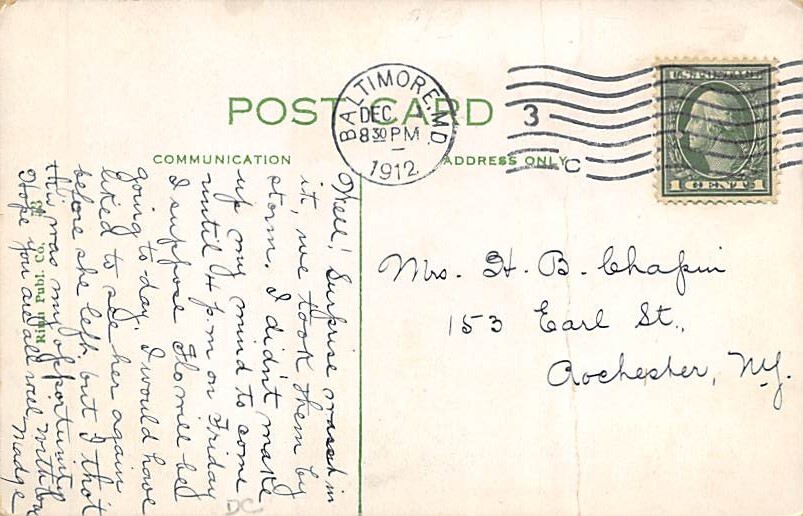 POST CARD
COMMUNICATION
ADDRESS ONLY
BALTIMORE, MD.
DEC 4
8 30 PM
1912
3
C
1 CENT 1
Mrs. H. B. Chapin
153 Earl St.,
Rochester, N.Y.
Well! Surprise wasn't in
it, we took them by
storm. I didn't make
up my mind to come
until 4 p.m on Friday
I suppose Flo will be
going to day. I would have
liked to see her again
before she left, but I that
this was my opportunity
Hope you are all well, with
Madge
Rinn Publ. Co.
DC